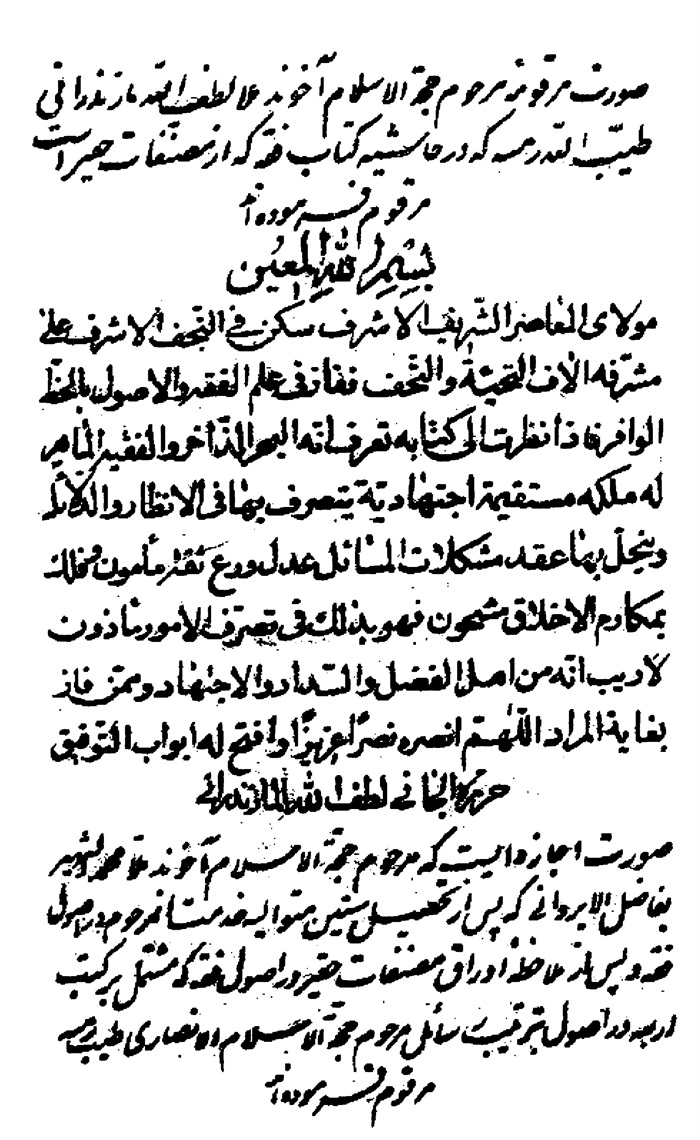 صورت مرقومه مرحوم حجة الاسلام آخوند ملا لطف الله مازندرانی
طیب الله رمسه که در حاشیه کتاب فقه که از مصنفات حقیر است
مرقوم فرموده اند
بسم الله المعین
مولای المعاصر الشریف الاشرف سکن فی النجف الاشرف علی
مشرفه الاف التحیة والتحف ففاز فی علم الفقه والاصول بالحظ
الوافر فاذا نظرت الی کتابه تعرف انه البحر الذاخر والفقیه الماهر
له ملکه مستقیمة اجتهادیة یتصرف بها فی الانظار والدلائل
وینحل بها عقد مشکلات المسائل عدل ورع ثقة مأمون فخلك
بمکارم الاخلاق مشحون فهو بذلك فی تصرف الامور مأذون
لاریب انه من اهل الفضل والسداد والاجتهاد وممن فاز
بغایة المراد اللهم انصره نصرا عزیزا وافتح له ابواب التوفیق
حرره الجانی لطف الله المازندرانی
صورت اجازه ایست که مرحوم حجة الاسلام آخوند ملا محمد الشهیر
بفاضل الایروانی که پس از تحصیل سنین متوالیه خدمت آنمرحوم در اصول
فقه و پس از ملاحظه اوراق مصنفات حقیر در اصول فقه که مشتمل بر کتب
اربعه در اصول بترتیب رسائل مرحوم حجة الاسلام الانصاری طیب رمسه
مرقوم فرموده اند